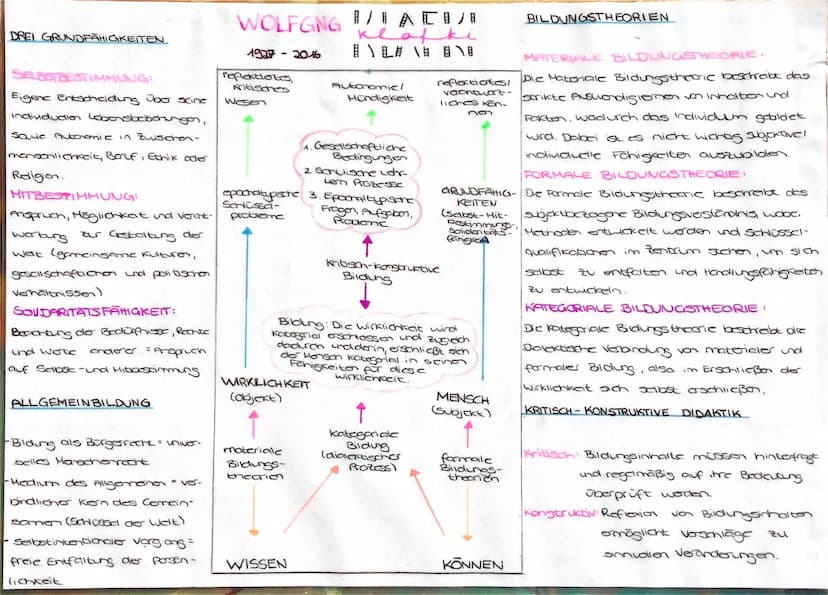 DREI GRUNDFÄHIGKEITEN
SELBSTBESTIMMUNG:
Eigene Entscheidung über seine
individuellen Lebensbeziehungen,
sowie Autonomie in Zwischen-
menschlichkeit, Beruf, Ethik oder
Religion.
MITBESTIMMUNG:
Anspruch, Möglichkeit und Verant-
wortung zur Gestaltung der
Welt (gemeinsame Kulturen,
gesellschaftlichen und politischen
Verhältnissen)
SOLIDARITÄTSFÄHIGKEIT:
Beachtung der Bedürfnisse, Rechte
und Werte anderer = Anspruch
auf Selbst- und Mitbestimmung
ALLGEMEINBILDUNG
-Bildung als Bürgerrecht = univer-
selles Menschenrecht
-Medium des Allgemeinen = ver-
bindlicher Kern des Gemein-
samen (Schlüssel der Welt)
-Selbstintentionaler Vorgang =
freie Entfaltung der Persön-
lichkeit
WOLFGNG
Klafki
1927 - 2016
reflektiertes,
kritisches
Wesen
Autonomie/
Mündigkeit
reflektiertes/
verantwort-
liches Kön-
nen
1. Gesellschaftliche
Bedingungen
2. Schulische Lehr-
Lern Prozesse
3. Epochaltypische
Fragen, Aufgaben,
Probleme
epochaltypische
Schlüssel-
probleme
GRUNDFÄHIG-
KEITEN
(Selbst-Mit-
bestimmungs,
Solidaritäts-
fähigkeit)
Kritisch-konstruktive
Bildung
Bildung: Die Wirklichkeit wird
kategorial erschlossen und zugleich
dadurch und darin, erschließt sich
der Mensch kategorial in seinen
Fähigkeiten für diese
Wirklichkeit.
WIRKLICHKEIT
(Objekt)
MENSCH
(Subjekt)
materiale
Bildungs-
theorien
Kategoriale
Bildung
(dialektischer
Prozess)
formale
Bildungs-
theorien
WISSEN
KÖNNEN
BILDUNGSTHEORIEN
MATERIALE BILDUNGSTHEORIE:
Die Materiale Bildungstheorie beschreibt das
strikte Auswendiglernen von Inhalten und
Fakten, wodurch das Individuum gebildet
wird. Dabei ist es nicht wichtig subjektive/
individuelle Fähigkeiten auszubilden.
FORMALE BILDUNGSTHEORIE:
Die Formale Bildungstheorie beschreibt das
subjektbezogene Bildungsverständnis, wobei
Methoden entwickelt werden und Schlüssel-
qualifikationen im Zentrum stehen, um sich
selbst zu entfalten und Handlungsfähigkeiten
zu entwickeln.
KATEGORIALE BILDUNGSTHEORIE:
Die Kategoriale Bildungstheorie beschreibt die
Dialektische Verbindung von materialer und
formaler Bildung, also im Erschließen der
Wirklichkeit sich selbst erschließen.
KRITISCH-KONSTRUKTIVE DIDAKTIK
Kritisch: Bildungsinhalte müssen hinterfragt
und regelmäßig auf ihre Bedeutung
überprüft werden.
Konstruktiv: Reflexion von Bildungsinhalten
ermöglicht Vorschläge zu
sinnvollen Veränderungen.